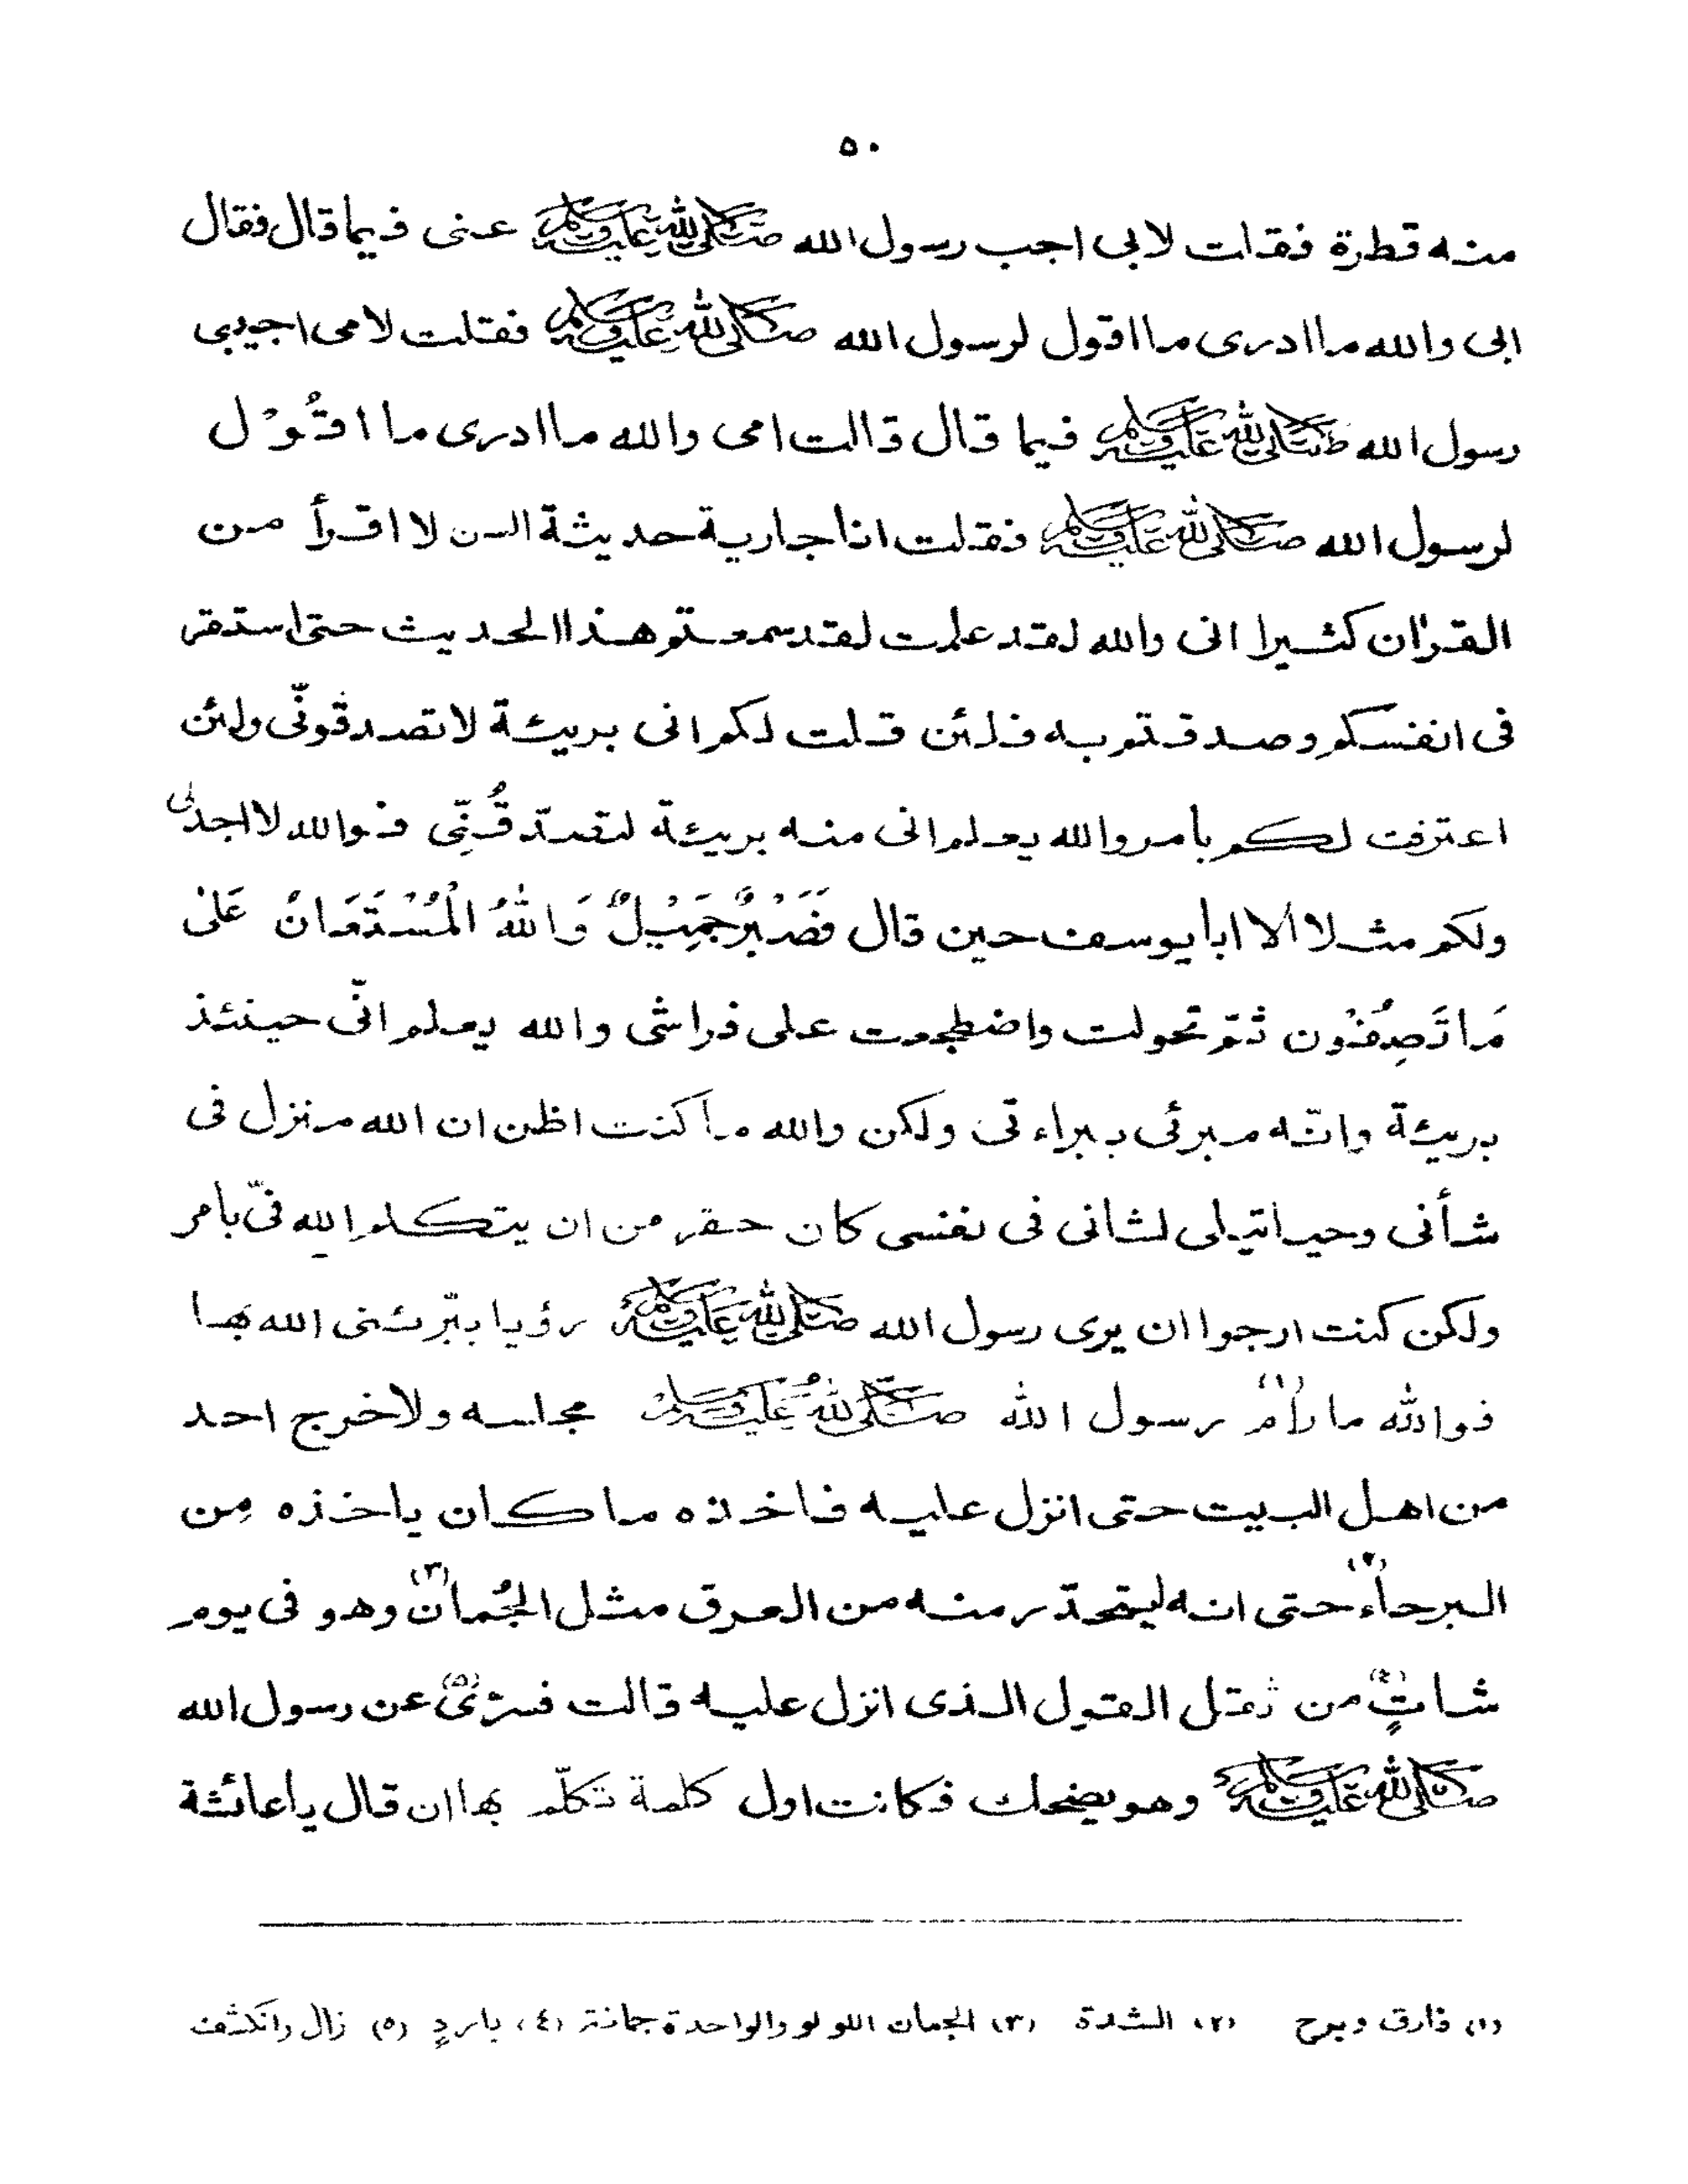 ٥٠
منه قطرة فقلت لابى اجب رسول الله صلى الله عليه وسلم عنى فيما قال فقال
ابى والله ما ادرى ما اقول لرسول الله صلى الله عليه وسلم فقلت لامى اجيبى
رسول الله صلى الله عليه وسلم فيما قال قالت امى والله ما ادرى ما اقُوْل
لرسول الله صلى الله عليه وسلم فقلت انا جارية حديثة السن لا اقرأ من
القرٰان كثيرا انى والله لقد علمت لقد سمعتم هذا الحديث حتى استقر
فى انفسكم وصدقتم به فلئن قلت لكم انى بريئة لا تصدقونّى ولئن
اعترفت لكم بأمر والله يعلم انى منه بريئة لتصدّقُنِّى فوالله لا اجد لى
ولكم مثلا الا ابا يوسف حين قال فَصَبْرٌ جَمِيْلٌ وَاللّٰهُ الْمُسْتَعَانُ عَلٰى
مَا تَصِفُوْن ثمّ تحولت واضطجعت على فراشى والله يعلم انّى حينئذ
بريئة وانّه مبرئى ببراءتى ولكن والله ما كنت اظن ان الله منزل فى
شأنى وحيا يتلى لشانى فى نفسى كان حقر من ان يتكلم الله فىّ بامر
ولكن كنت ارجوا ان يرى رسول الله صلى الله عليه وسلم رؤيا يبّرئنى الله بها
فوالله ما رام (١) رسول الله صلى الله عليه وسلم مجلسه ولا خرج احد
من اهل البيت حتى انزل عليه فاخذه ما كان ياخذه مِن
البرحاء (٢) حتى انه ليتحدّر منه من العرق مثل الجُمان (٣) وهو فى يوم
شاتٍ (٤) من ثقل القول الذى انزل عليه قالت فسرّى (٥) عن رسول الله
صلى الله عليه وسلم وهو يضحك فكانت اول كلمة تكلّم بها ان قال يا عائشة
(١) فارق وبرح (٢) الشدة (٣) الجمان اللولو والواحدة جمانة (٤) باردٍ (٥) زال وانكشف